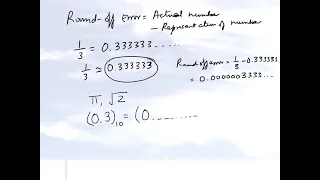 Round-off error = Actual number
- Representation of number
1/3 = 0.333333.....
1/3 ≃ 0.333333
Round off error = 1/3 - 0.333333
= 0.0000003333...
π, √2
(0.3)₁₀ = (0.........